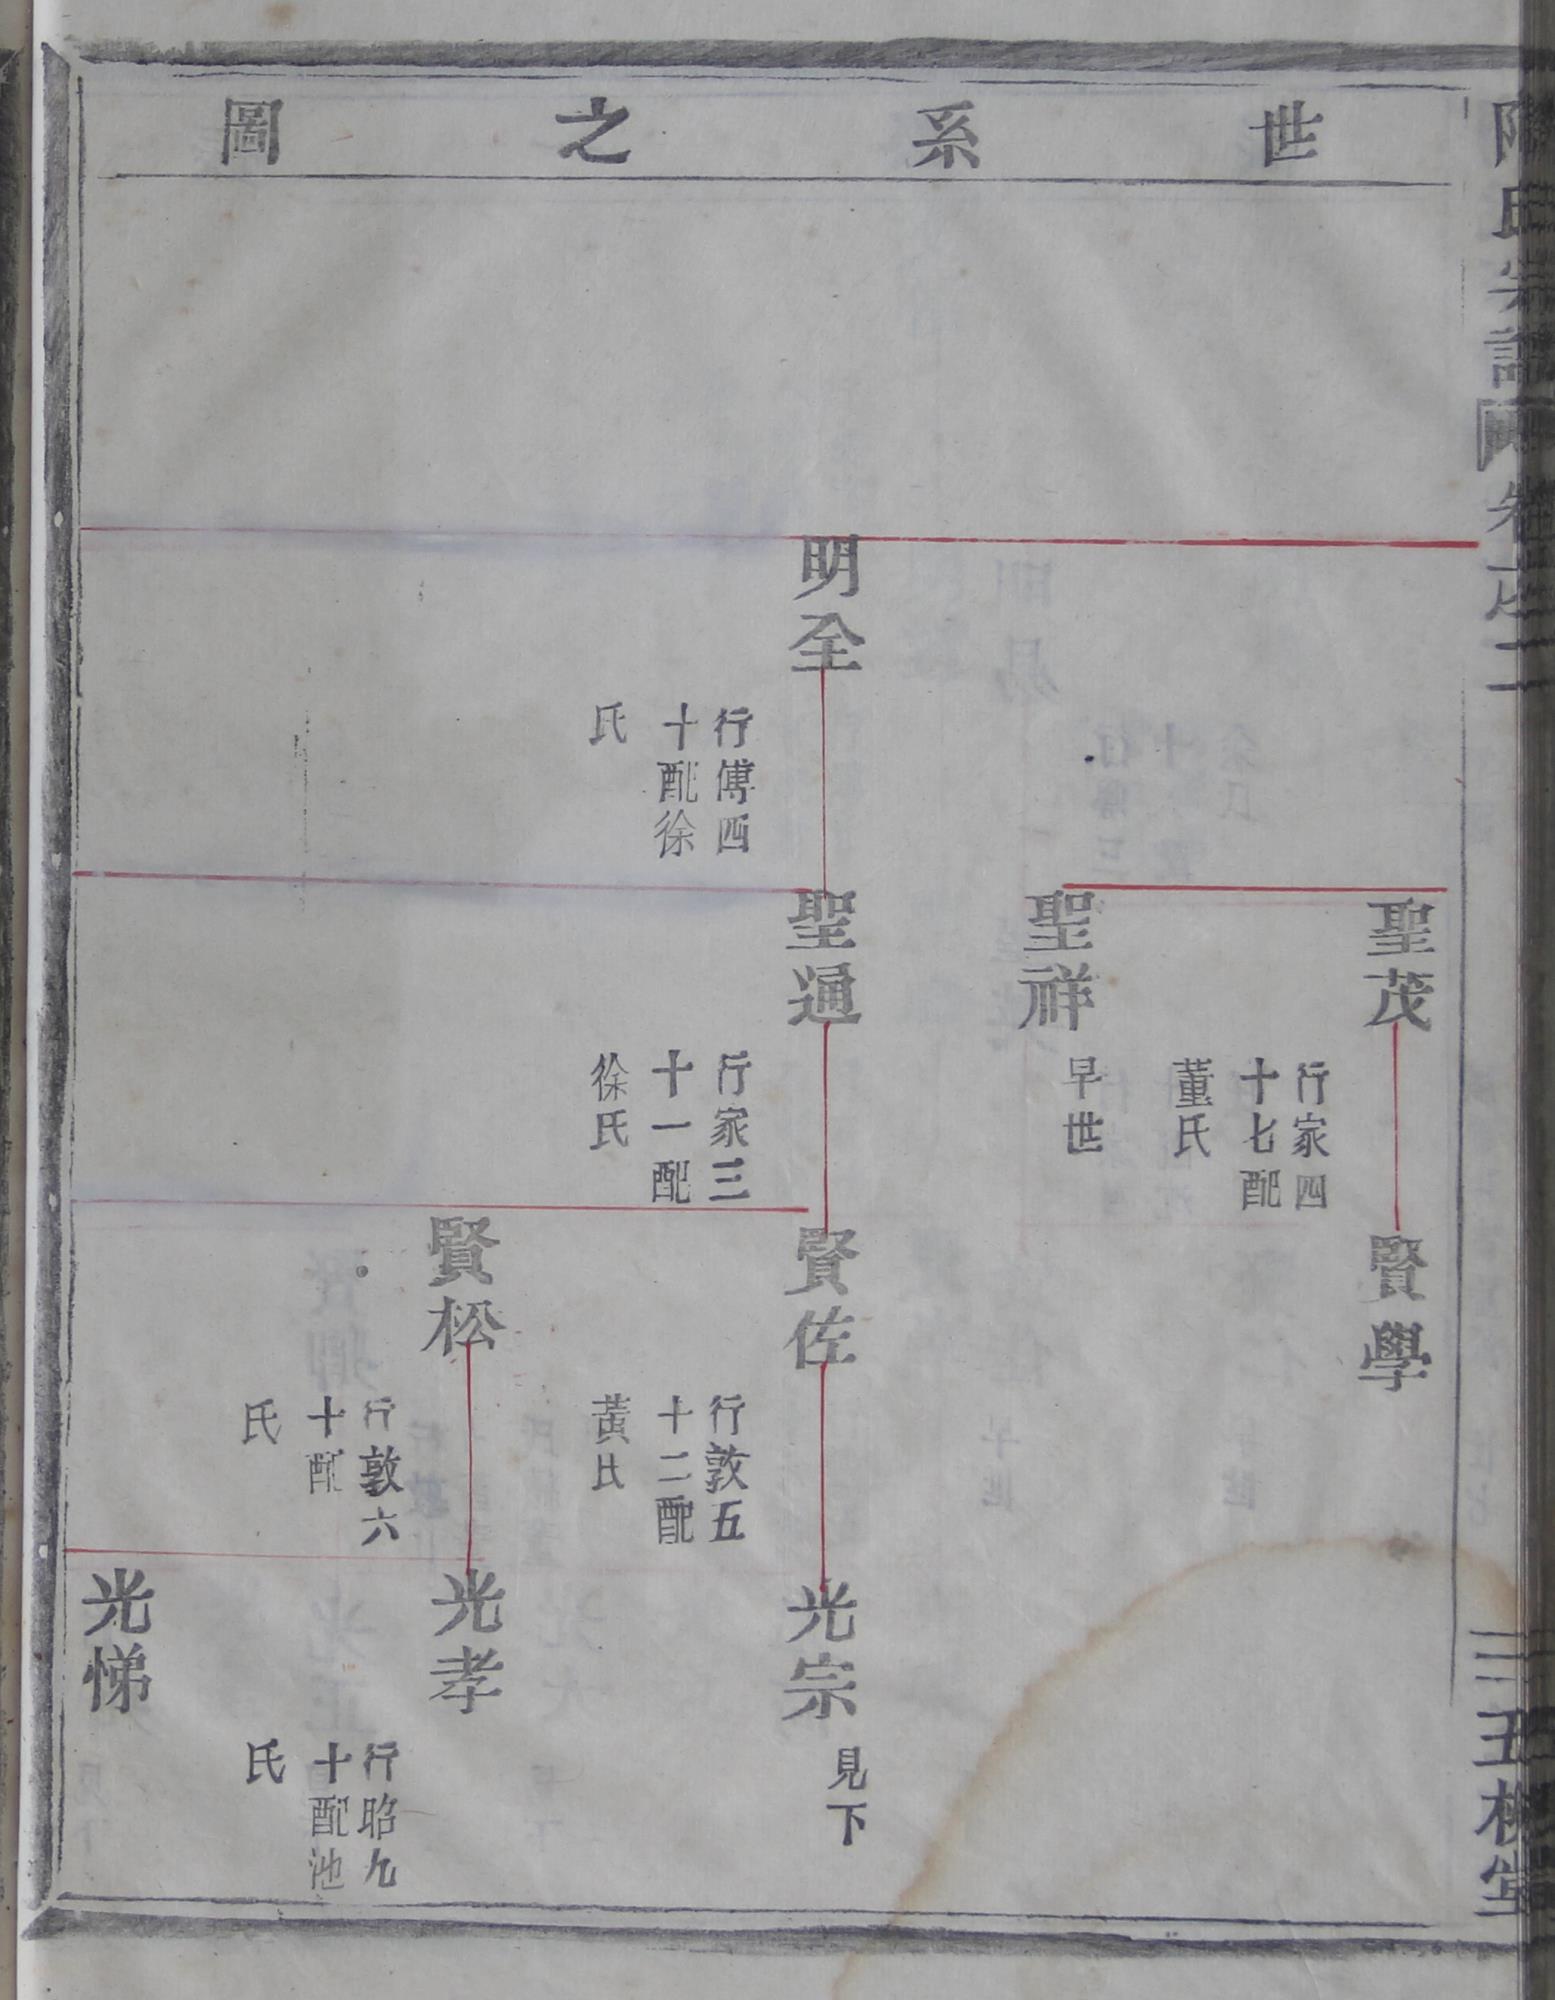 世系之圖
明全
行傳四
十配徐
氏
聖茂
行家四
十七配
董氏
聖祥
早世
聖通
行家三
十一配
徐氏
賢學
賢佐
行敦五
十二配
黃氏
賢松
行敦六
十配
氏
光宗
見下
光孝
行昭九
十配池
氏
光悌
氏宗譜
卷之二